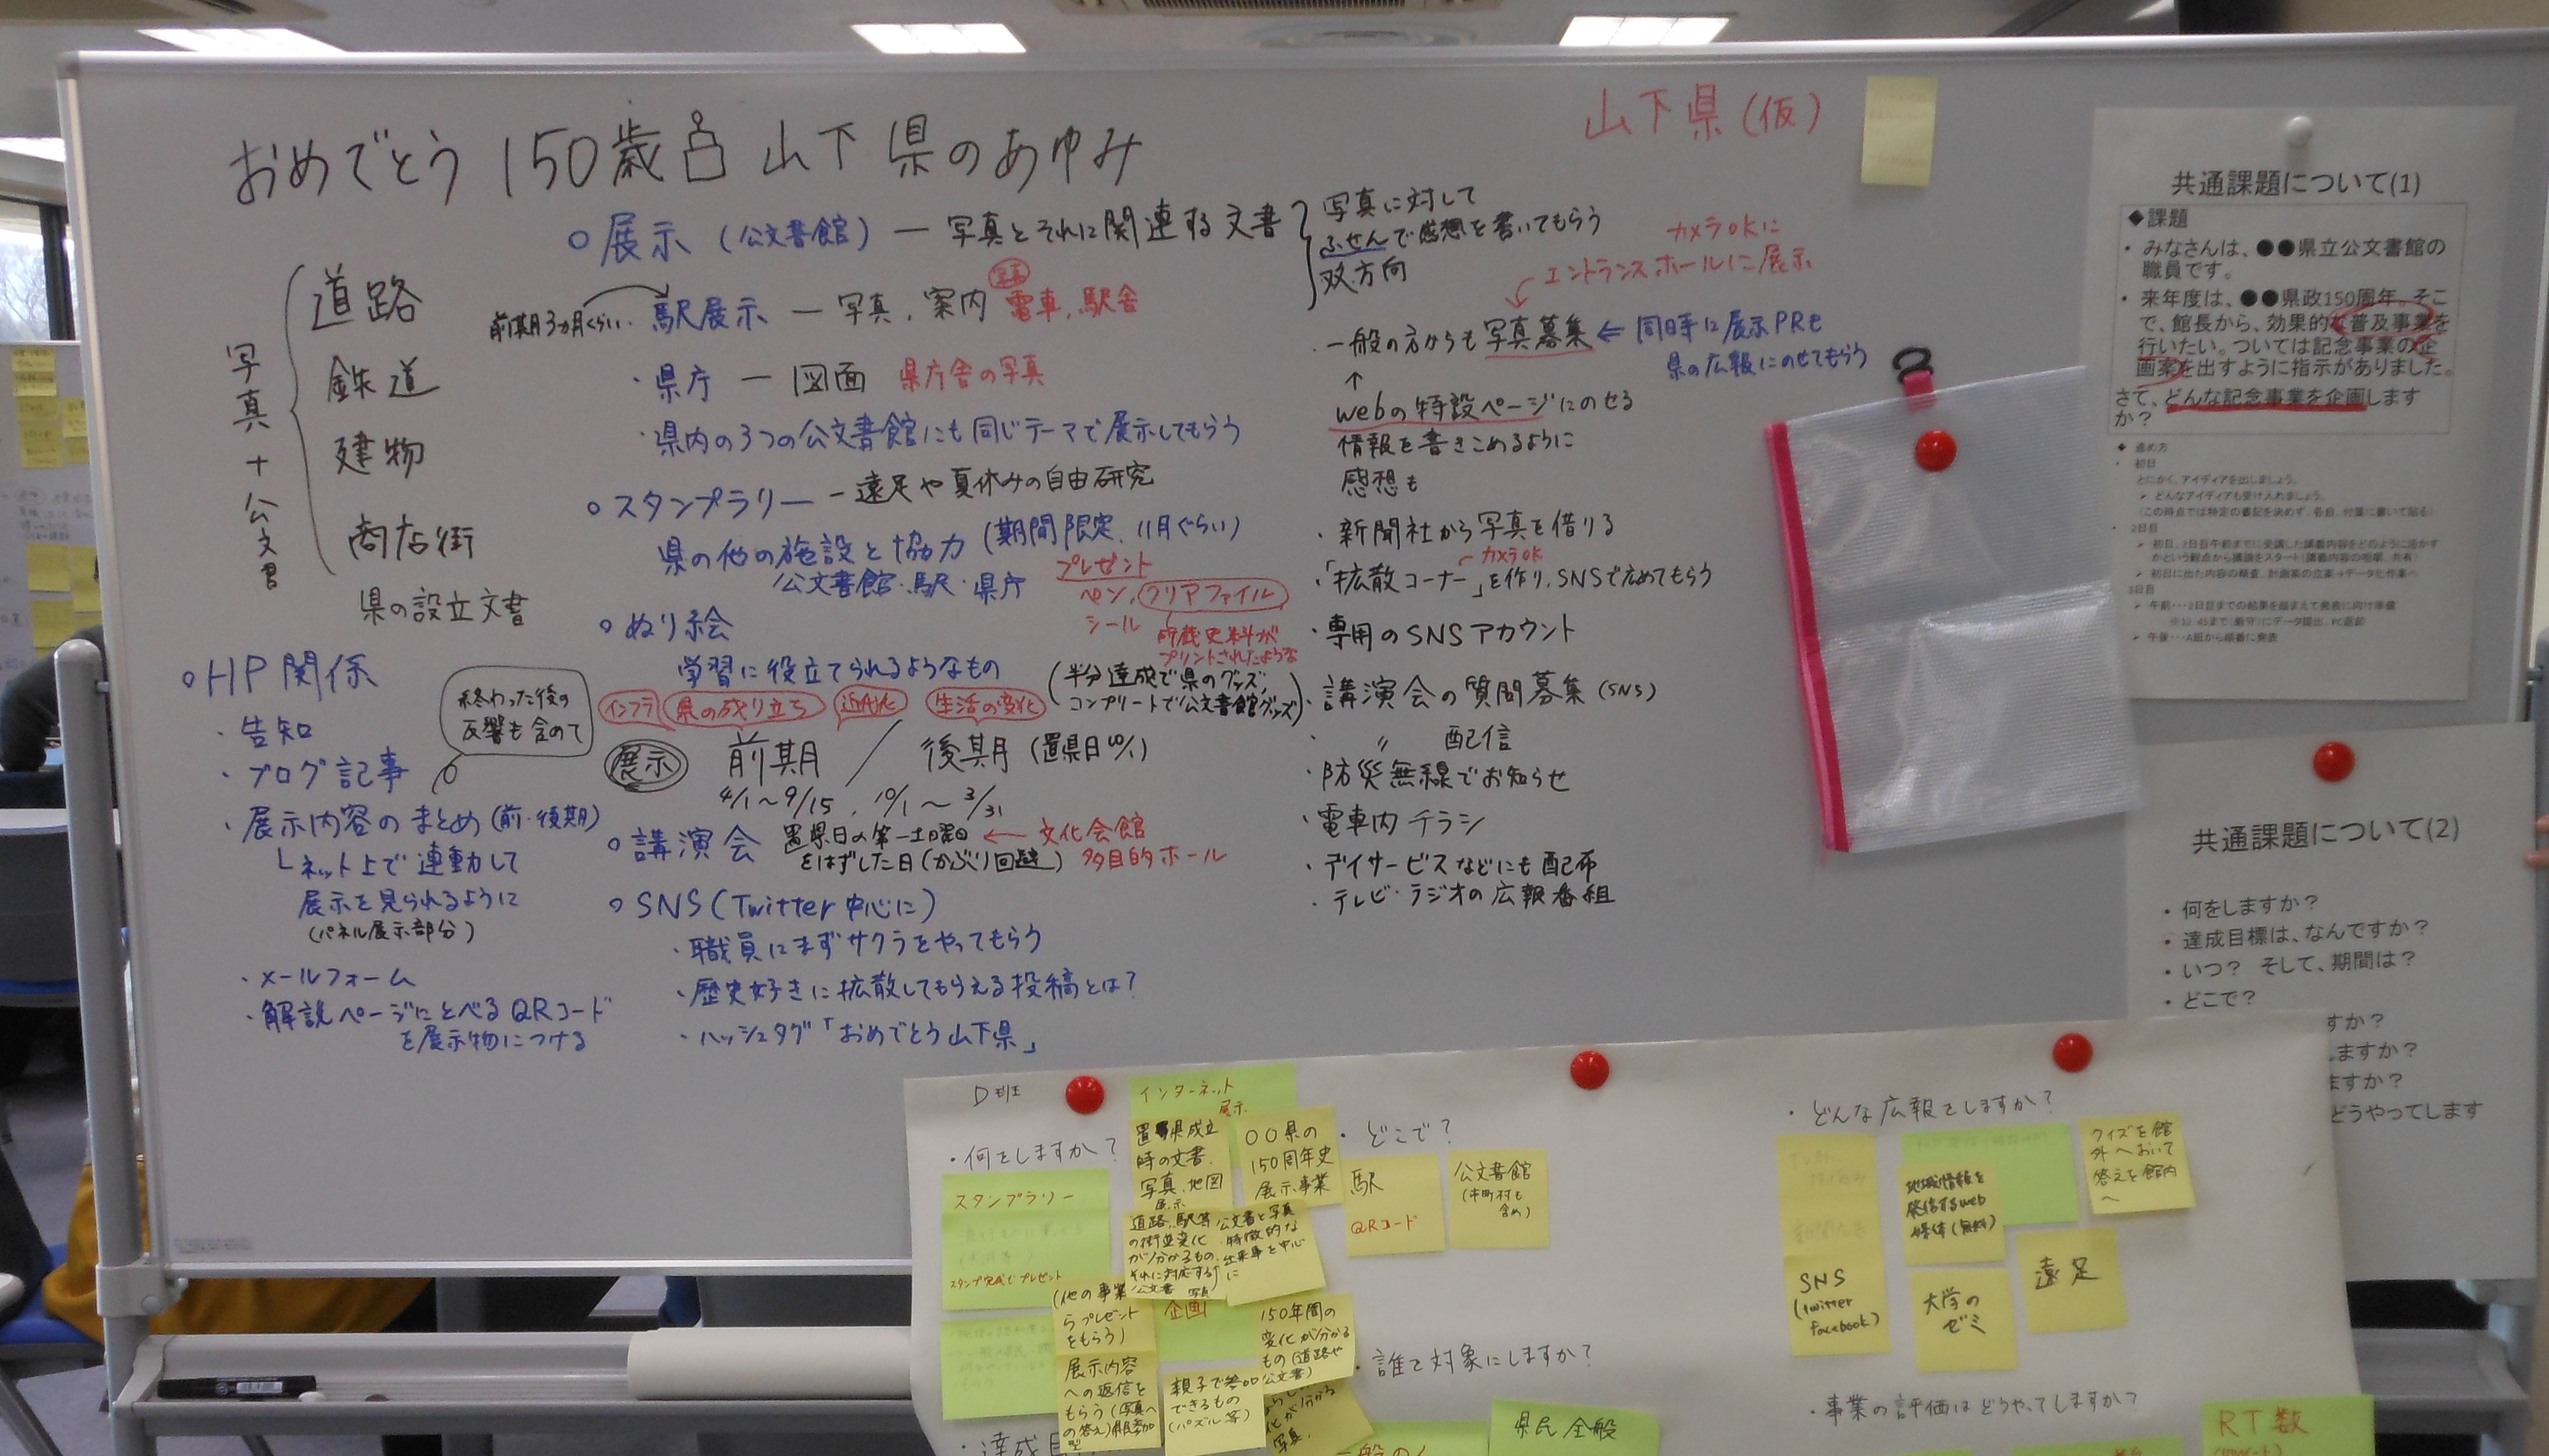 おめでとう 150歳 山下県のあゆみ
山下県(仮)
写真+公文書
道路
鉄道
建物
商店街
県の設立文書
○展示(公文書館)ー写真とそれに関連する文書
写真に対して
ふせんで感想を書いてもらう
双方向
前期3ヵ月くらい
・駅展示 ー 写真、案内
写真
電車、駅舎
・県庁 ー 図面 県庁舎の写真
・県内の3つの公文書館にも同じテーマで展示してもらう
○スタンプラリー ー遠足や夏休みの自由研究
県の他の施設と協力(期間限定、11月ぐらい)
公文書館・駅・県庁
プレゼント
ペン、クリアファイル
シール
貯蔵史料が
プリントされたような
(半分達成で県のグッズ、
コンプリートで公文書館グッズ)
○ぬり絵
学習に役立てられるようなもの
インフラ 県の成り立ち 近代化 生活の変化
展示 前期 / 後期(置県日10/1)
4/1〜9/15、10/1〜3/31
○講演会 置県日の第一土曜日
をはずした日(かぶり回避)
←文化会館
多目的ホール
○SNS(Twitter中心に)
・職員にまずサクラをやってもらう
・歴史好きに拡散してもらえる投稿とは?
・ハッシュタグ「おめでとう山下県」
○HP関係
・告知
・ブログ記事
終わった後の
反響も含めて
・展示内容のまとめ(前・後期)
└ネット上で連動して
展示を見られるように
(パネル展示部分)
・メールフォーム
・解説ページにとべるQRコード
を展示物につける
カメラOKに
エントランスホールに展示
・一般の方からも写真募集 ⇐ 同時に展示PRを
県の広報にのせてもらう
↑
webの特設ページにのせる
情報を書きこめるように
感想も
・新聞社から写真を借りる
カメラOK
・「拡散コーナー」を作り、SNSで広めてもらう
・専用のSNSアカウント
・講演会の質問募集(SNS)
・ 〃 配信
・防災無線でお知らせ
・電車内チラシ
・デイサービスなどにも配布
・テレビ・ラジオの広報番組
共通課題について(1)
◆課題
• みなさんは、●●県立公文書館の
職員です。
• 来年度は、●●県政150周年。そこ
で、館長から、効果的な普及事業を
行いたい。ついては記念事業の企
画案を出すように指示がありました。
さて、どんな記念事業を企画します
か?
◆ 進め方
• 初日
とにかく、アイディアを出しましょう。
➢ どんなアイディアも受け入れましょう。
(この時点では特定の書記を決めず、各自、付箋に書いて貼る)
• 2日目
➢ 初日、2日目午前までに受講した講義内容をどのように活かす
かという観点から議論をスタート(講義内容の咀嚼、共有)
➢ 初日に出た内容の精査、計画案の立案→データ化作業へ
3日目
➢ 午前・・・2日目までの結果を踏まえて発表に向け準備
※12:45まで(厳守)にデータ提出、PC返却
➢ 午後・・・A班から順番に発表
共通課題について(2)
• 何をしますか?
• 達成目標は、なんですか?
• いつ? そして、期間は?
• どこで?
すか?
しますか?
ますか?
どうやってします
D班
・何をしますか?
スタンプラリー
スタンプ完成でプレゼント
インターネット
展示
置県成立
時の文書、
写真、地図
展示
○○県の
150周年史
展示事業
道路、駅等
の街並変化
が分かるもの、
それに対応する
公文書
公文書と写真
特徴的な
出来事を中心
に
(他の事業
らプレゼント
をもらう)
写真
企画
展示内容
への返信を
もらう(写真へ
の答え)県民参加
型
親子で参加
できるもの
(パズル等)
150年間の
変化が分かる
もの(道路や
公文書)
化が分かる
写真、
・どこで?
駅
QRコード
公文書館
(市町村も
含め)
・誰を対象にしますか?
県民全般
・どんな広報をしますか?
SNS
(twitter
facebook)
地域情報を
発信するweb
媒体(無料)
大学の
ゼミ
クイズを館
外へおいて
答えを館内
へ
遠足
・事業の評価はどうやってしますか?
RT数